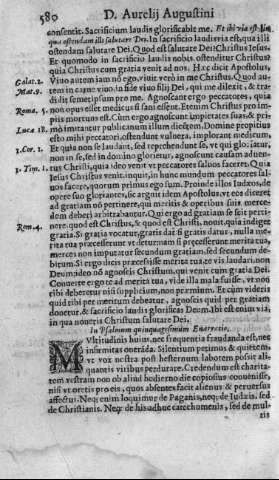 580 D. Aurelij Augustini
consentit. Sacrificium laudis glorificabit me. Et ibi via est illi,
qua ostendam illi salutare Dei. In sacrificio laudis via est, qua illi
ostendam salutare Dei. Quod est salutare Dei? Christus Iesus.
Et quomodo in sacrificio laudis nobis ostenditur Christus?
quia Christus cum gratia venit ad nos. Hæc dicit Apostolus,
Galat. 2. Vivo autem iam nō ego, vivit verò in me Christus. Quod au-
tem in carne vivo, in fide vivo filij Dei, qui me dilexit, & tra-
Mat. 9. didit semetipsum pro me. Agnoscant ergo peccatores, quia
Roma. 5. non opus esset medicus si sani essent. Etenim Christus pro im-
pijs mortuus est. Cùm ergo agnoscunt impietates suas, & pri-
Luca 18. mò imitantur publicanum illum dicentem, Domine propitius
esto mihi peccatori, ostendunt vulnera, implorant medicum,
1. Cor. 1. Et quia non se laudant, sed reprehendunt se, vt qui gloriatur,
non in se, sed in domino glorietur, agnoscunt causam adven-
1. Tim. 1. tus Christi, quia ideo venit vt peccatores salvos faceret. Quia
Iesus Christus venit, inquit, in hunc mundum peccatores sal-
vos facere, quorum primus ego sum. Proinde illos Iudæos, de
opere suo gloriantes, sic arguit idem Apostolus, vt eos diceret
ad gratiam nō pertinere, qui meritis & operibus suis merce-
dem deberi arbitrabantur. Qui ergo ad gratiam se scit perti-
nere, quod est Christus, & quod est Christi, novit quia indiget
Rom. 4. gratia. Si gratia vocatur, gratis datur: si gratis datur, nulla me-
rita tua præcesserunt vt detur.
bitum. Si ergo dicis præcessisse merita tua, te vis laudari, non
Deum, ideo nō agnoscis Christum, qui venit cum gratia Dei.
Converte ergo te ad merita tua, vide illa mala fuisse, vt non
tibi deberetur nisi supplicium, non præmium. Et cùm videris
quid tibi per meritum debeatur, agnoscis quid per gratiam
donetur, & sacrificio laudis glorificas Deum. Ibi est enim via,
in qua noveris Christum salutare Dei.
In Psalmum quinquagesimum Enarratio.
MVltitudinis huius, nec frequentia fraudanda est, nec
infirmitas onerāda. Silentium petimus & quietem,
vt vox nostra post hesternum laborem possit ali-
quantis viribus perdurare. Credendum est charita-
tem vestram non ob aliud hodierno die copiosius convenisse,
nisi vt oretis pro eis, quos absentes facit alienus & perversus
affectus. Neq; enim loquimur de Paganis, neq; de Iudæis, sed
de Christianis. Neq; de his adhuc catechumenis, sed de mul-
tis